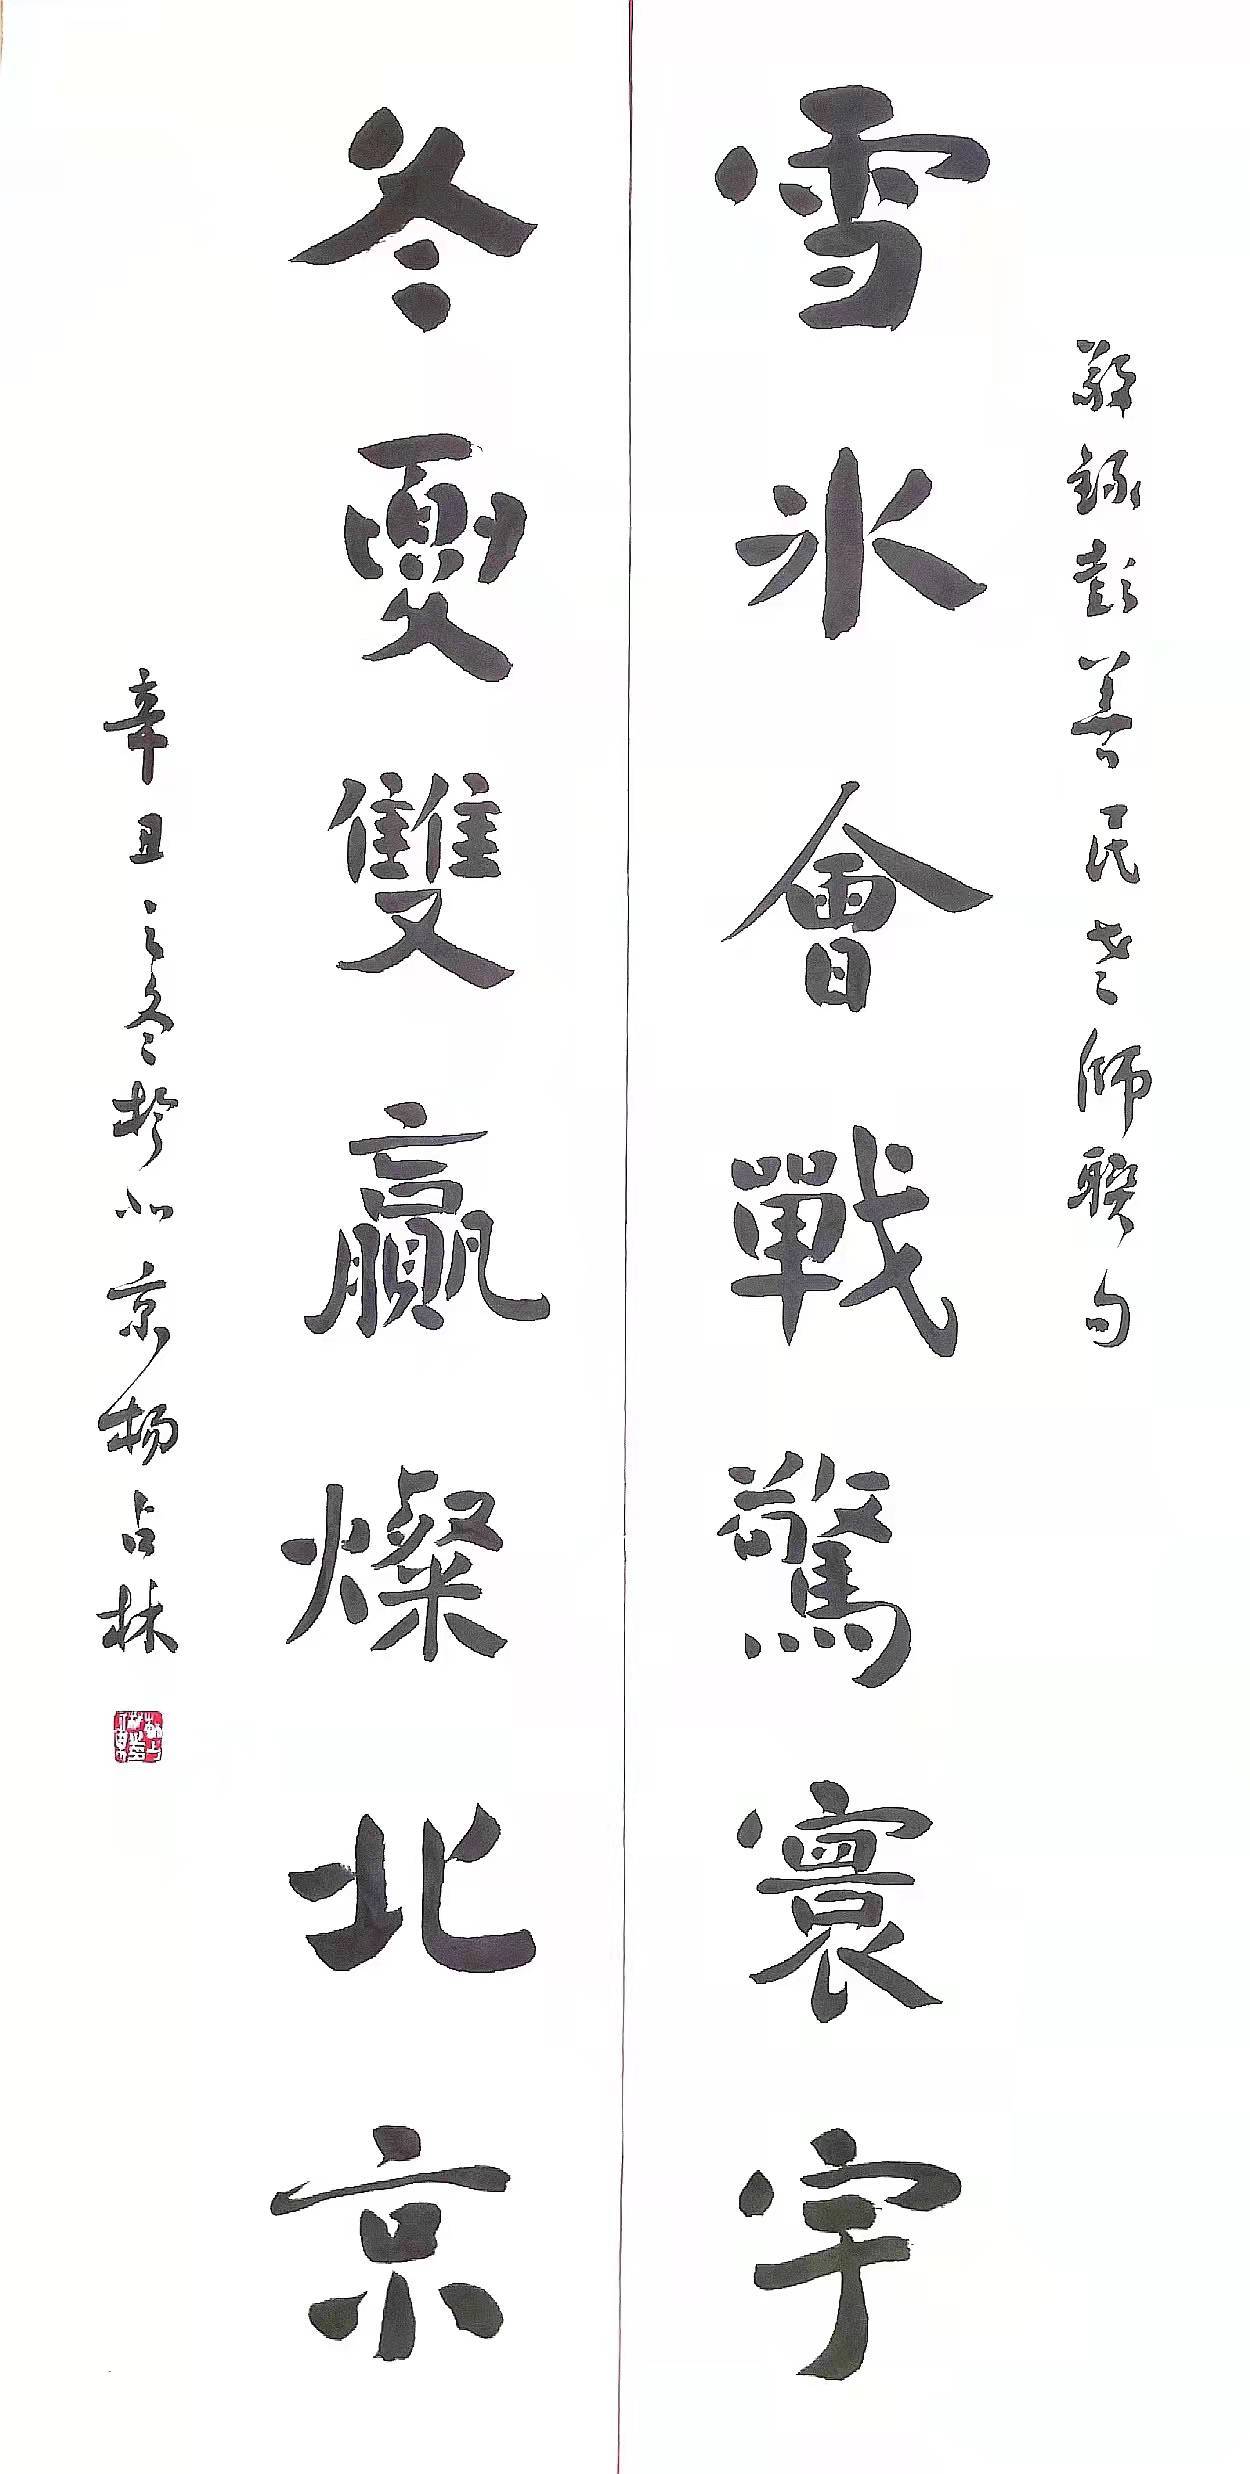 敬錄彭善民老師聯句
雪冰會戰驚寰宇
冬夓雙贏燦北京
辛丑之冬於北京杨占林